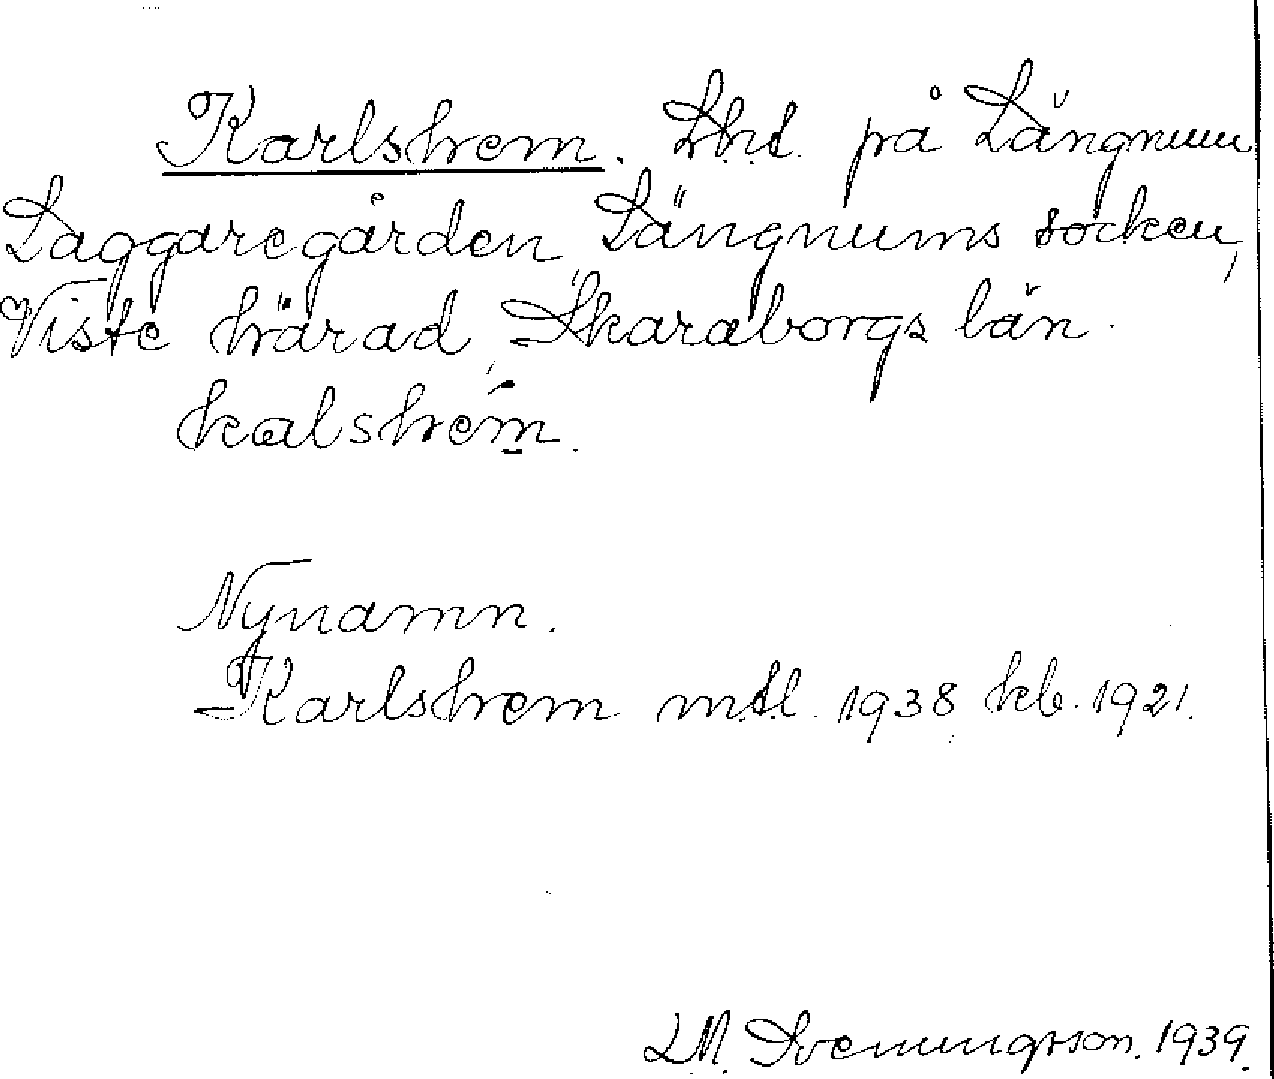 Karlshem. Lht. på Längnum
Laggaregården, Längnums socken,
Viste härad, Skaraborgs län.
kalshem.
Nynamn.
Karlshem mtl. 1938, kb. 1921.
L.M. Svenungsson. 1939.